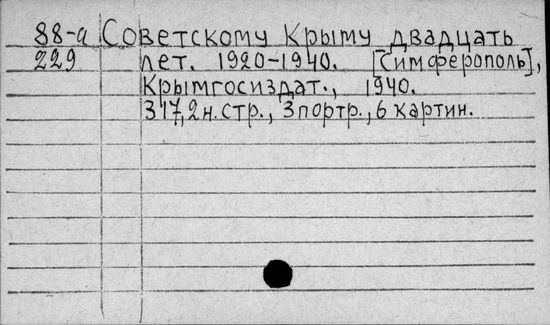 88-а Советскому Крыму двадцать
229 лет. 1920-1940. [Симферополь],
Крымгосиздат., 1940.
317,2 н. стр., 3 портр., 6 картин.